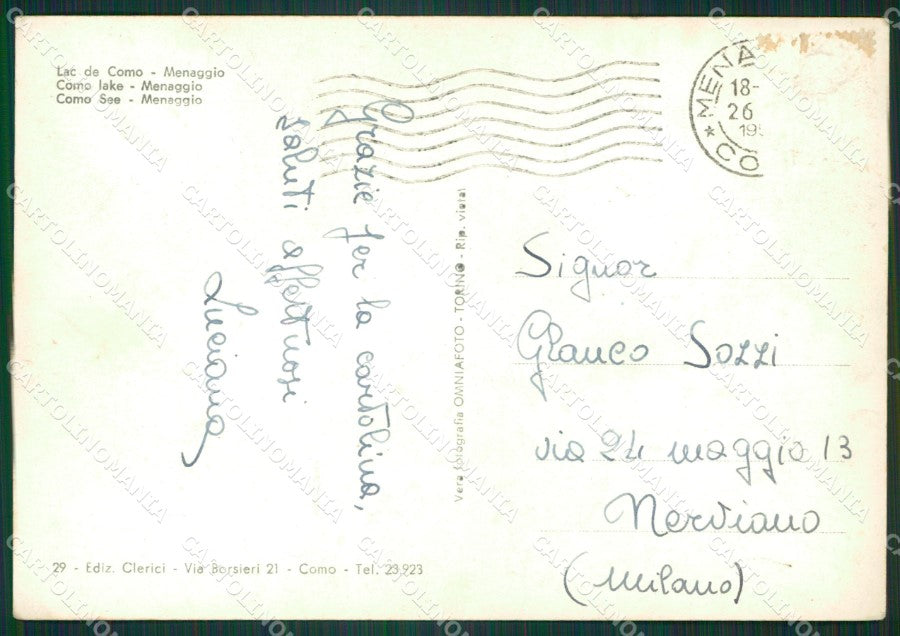 Lac de Como - Menaggio
Como lake - Menaggio
Como See - Menaggio
* MENA
18-
26
195
CO
Grazie per la cartolina,
saluti affettuosi
Luciana
Vera fotografia OMNIAFOTO - TORINO - Rip. vietata
Signor
Glauco Sozzi
via 24 maggio 13
Nerviano
(Milano)
29 - Ediz. Clerici - Via Borsieri 21 - Como - Tel. 23.923
CARTOLINOMANIA